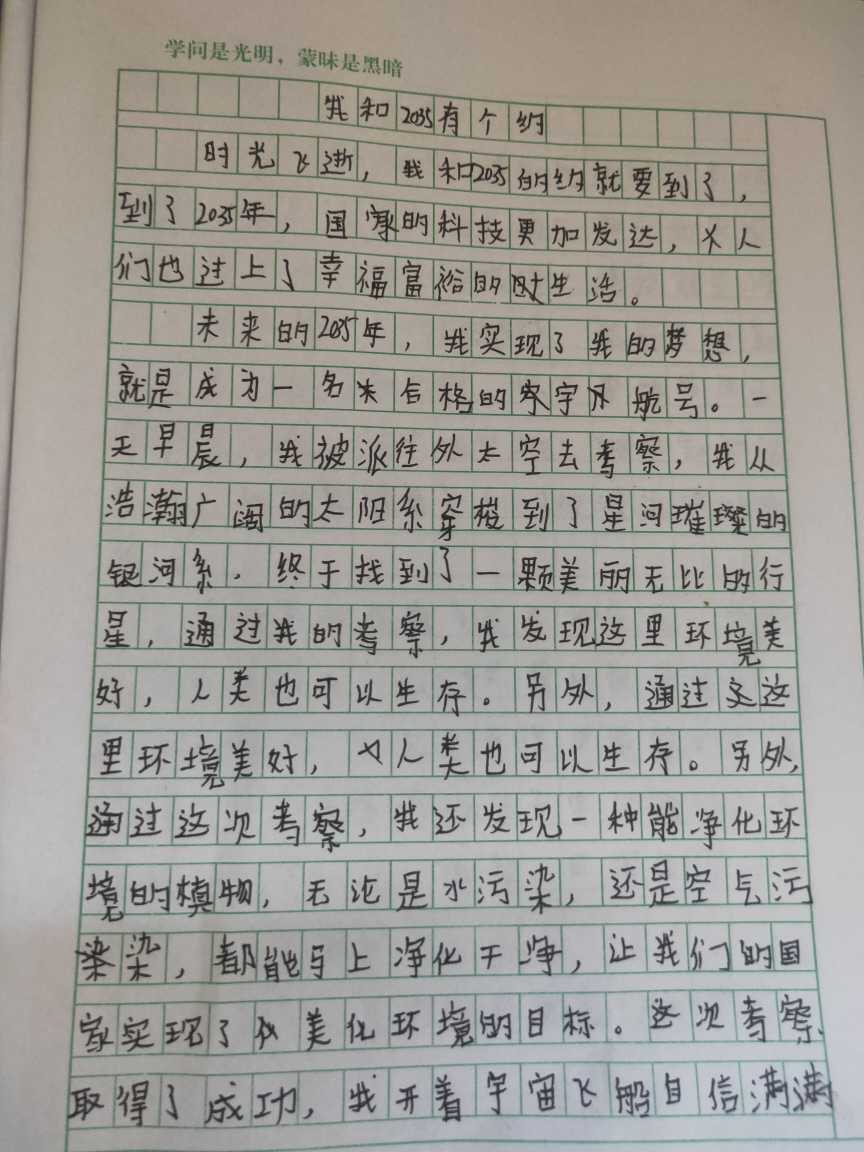 学问是光明，蒙昧是黑暗
我和2035有个约
时光飞逝，我和2035的约就要到了，
到了2035年，国家的科技更加发达，人
们也过上了幸福富裕的生活。
未来的2035年，我实现了我的梦想，
就是成为一名合格的宇航号。一
天早晨，我被派往外太空去考察，我从
浩瀚广阔的太阳系穿梭到了星河璀璨的
银河系．终于找到了一颗美丽无比的行
星，通过我的考察，我发现这里环境美
好，人类也可以生存。另外，通过这
里环境美好，人类也可以生存。另外，
通过这次考察，我还发现一种能净化环
境的植物，无论是水污染，还是空气污
染染，都能马上净化干净，让我们的国
家实现了美化环境的目标。这次考察
取得了成功，我开着宇宙飞船自信满满